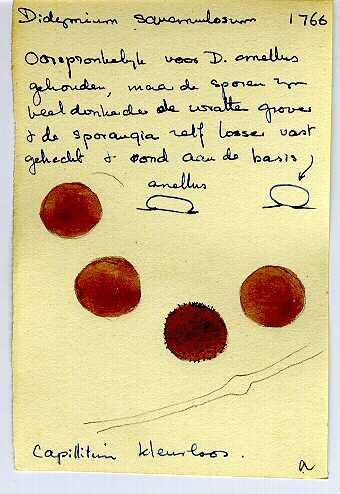 Didymium squamulosum 1766
Oorspronkelijk voor D. anellus
gehouden, maar de sporen zijn
veel donkerder de wratten grover
& de sporangia zelf losser vast
gehecht & rond aan de basis
anellus
Capillitium kleurloos.